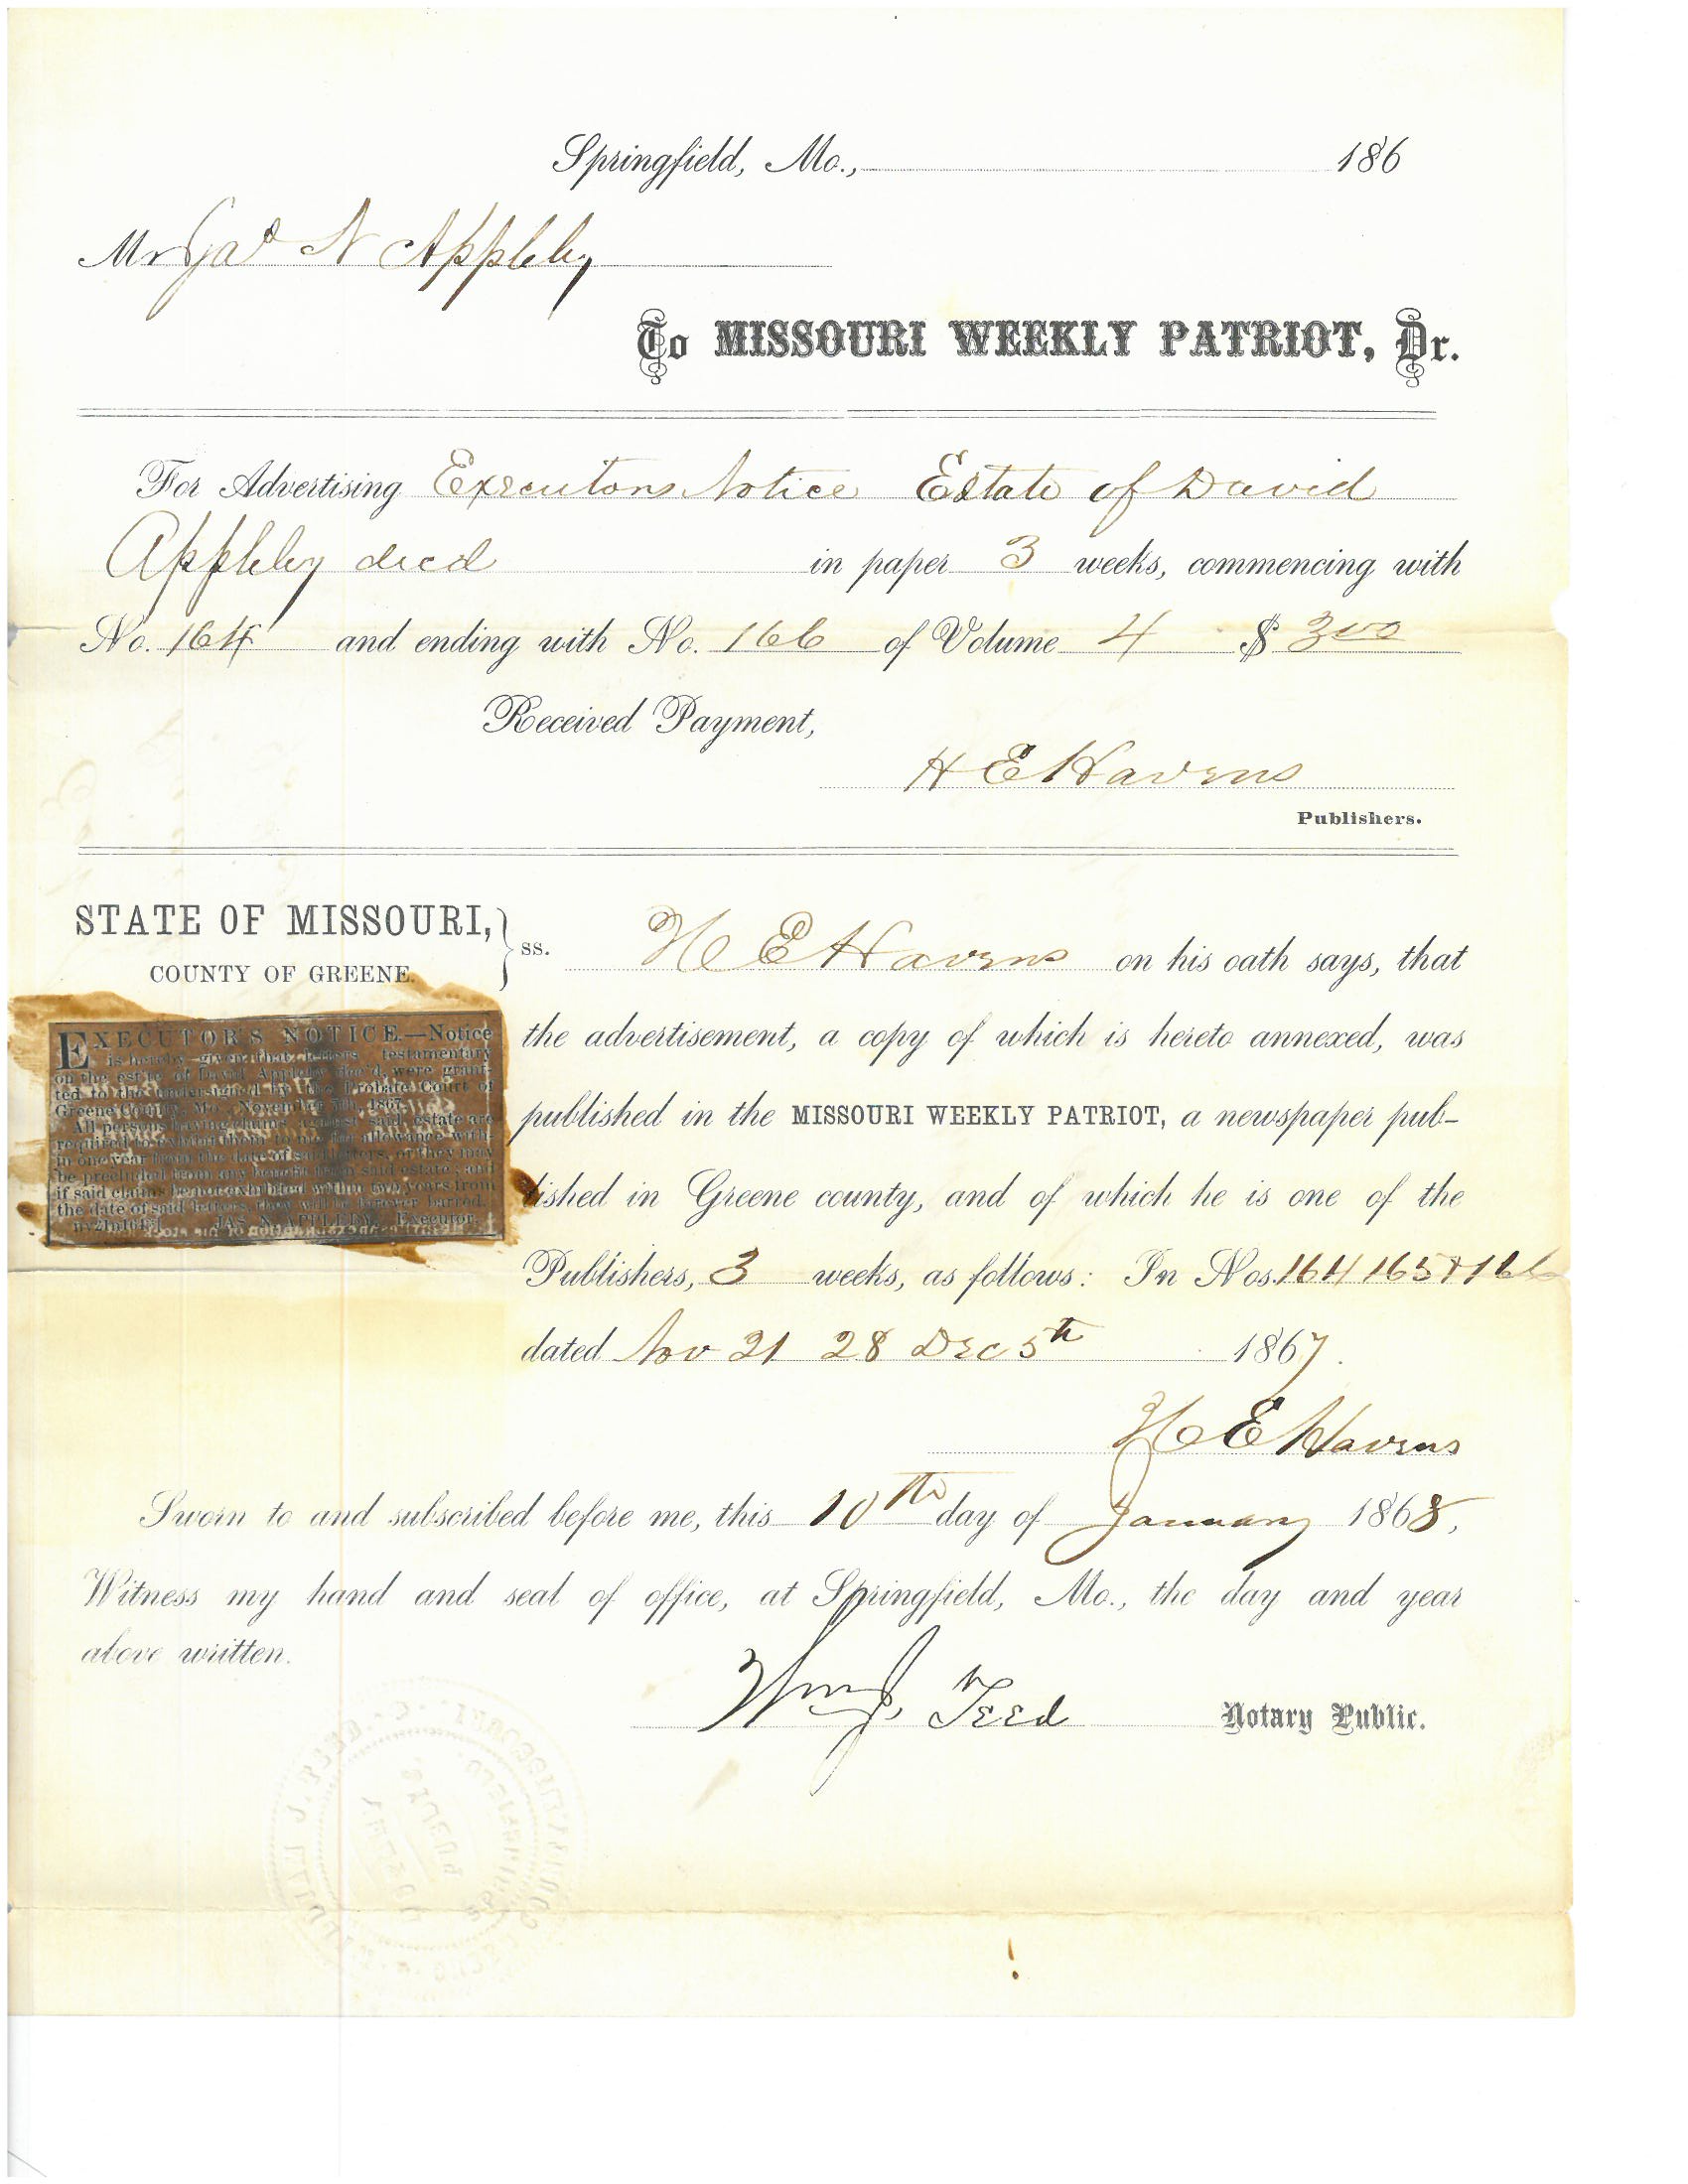 Springfield, Mo., 186
Mr Jas N Appleby
To MISSOURI WEEKLY PATRIOT, Dr.
For Advertising Executors Notice Estate of David
Appleby decd in paper 3 weeks, commencing with
No. 164 and ending with No. 166 of Volume 4 $ 300
Received Payment,
H E Havens
Publishers.
STATE OF MISSOURI,
COUNTY OF GREENE. } ss.
H E Havens on his oath says, that
the advertisement, a copy of which is hereto annexed, was
published in the MISSOURI WEEKLY PATRIOT, a newspaper pub-
lished in Greene county, and of which he is one of the
Publishers, 3 weeks, as follows: In Nos. 164 165 & 166
dated Nov 21 28 Dec 5th 1867.
H E Havens
EXECUTOR'S NOTICE.—Notice
is hereby given that letters testamentary
on the estate of David Appleby dec'd, were gran-
ted to the undersigned by the Probate Court of
Greene County, Mo., November 1867.
All persons having claims against said estate are
required to exhibit them to me for allowance with-
in one year from the date of said letters, or they may
be precluded from any benefit from said estate; and
if said claims be not exhibited within two years from
the date of said letters, they will be forever barred.
JAS. N. APPLEBY, Executor.
Sworn to and subscribed before me, this 10th day of January 1868,
Witness my hand and seal of office, at Springfield, Mo., the day and year
above written.
Wm J. Teed Notary Public.